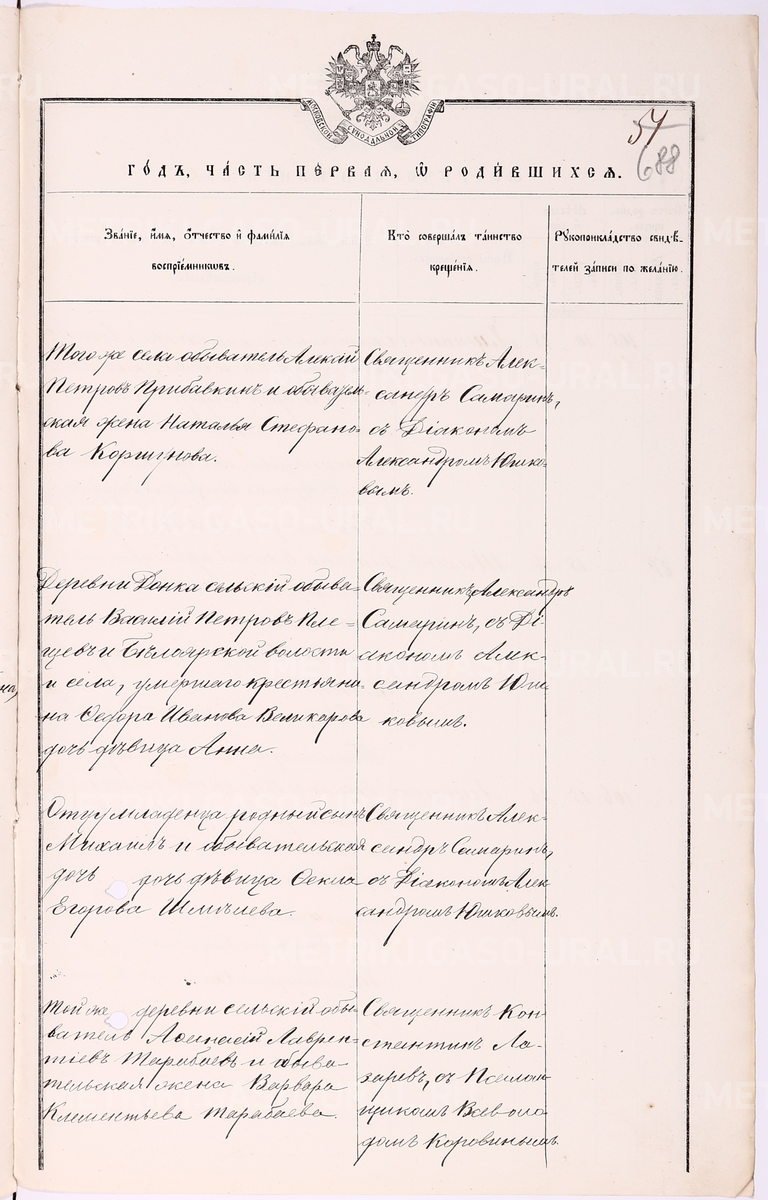 МОСКОВСКОЙ СѴНОДАЛЬНОЙ ТИПОГРАФІИ
54
688
ГО́ДЪ, ЧА́СТЬ ПЕ́РВАЯ, Ѡ҆ РОДИ́ВШИХСѦ.
Зва́нїе, и҆́мѧ, ѻ҆́тчество и҆ фами́лїѧ
воспрїе́мникѡвъ.
Кто̀ соверша́лъ та́инство
креще́нїѧ.
Рꙋкоприкла́дство свидѣ́-
телей за́писи по жела́нїю.
Того же села обыватель Алексѣй
Петровъ Прибавкинъ и обыватель-
ская жена Наталья Стефано-
ва Коршунова.
Священникъ Алек-
сандръ Самаринъ,
съ Діакономъ
Александромъ Юшко-
вымъ.
Деревни Донка сельскій обыва-
тель Василій Петровъ Пле-
щевъ и Бѣлоярской волости
и села, умершаго крестьяни-
на Ѳедора Иванова Великарова
дочь дѣвица Анна.
Священникъ Александръ
Самаринъ, съ Ді-
акономъ Алек-
сандромъ Юш-
ковымъ.
Отцу младенца родный сынъ
Михаилъ и обывательская
дочь дочь дѣвица Ѳекла
Егорова Шмелева.
Священникъ Алек-
сандръ Самаринъ,
съ Діакономъ Алек-
сандромъ Юшковымъ.
Той же деревни сельскій обы-
ватель Аѳанасій Лаврен-
тіевъ Тарабаевъ и обыва-
тельская жена Варвара
Климентьева Тарабаева.
Священникъ Кон-
стантинъ Ла-
заревъ, съ Псалом-
щикомъ Всеволо-
домъ Коровинымъ.
METRIKI.GASO-URAL.RU